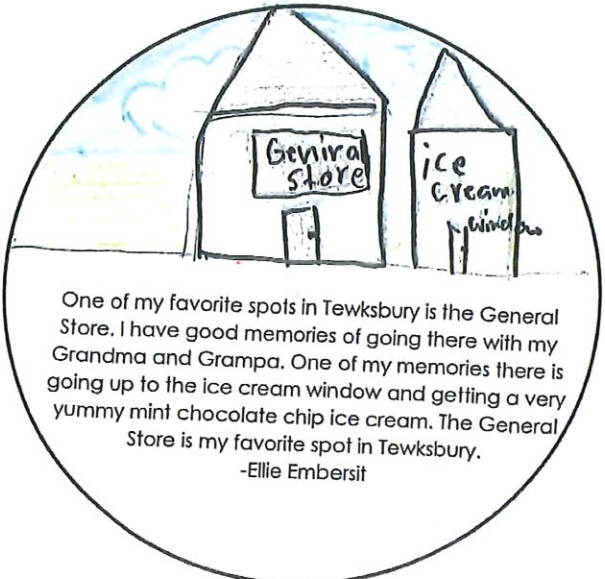 Geniral
Store
ice
cream
window
One of my favorite spots in Tewksbury is the General
Store. I have good memories of going there with my
Grandma and Grampa. One of my memories there is
going up to the ice cream window and getting a very
yummy mint chocolate chip ice cream. The General
Store is my favorite spot in Tewksbury.
-Ellie Embersit